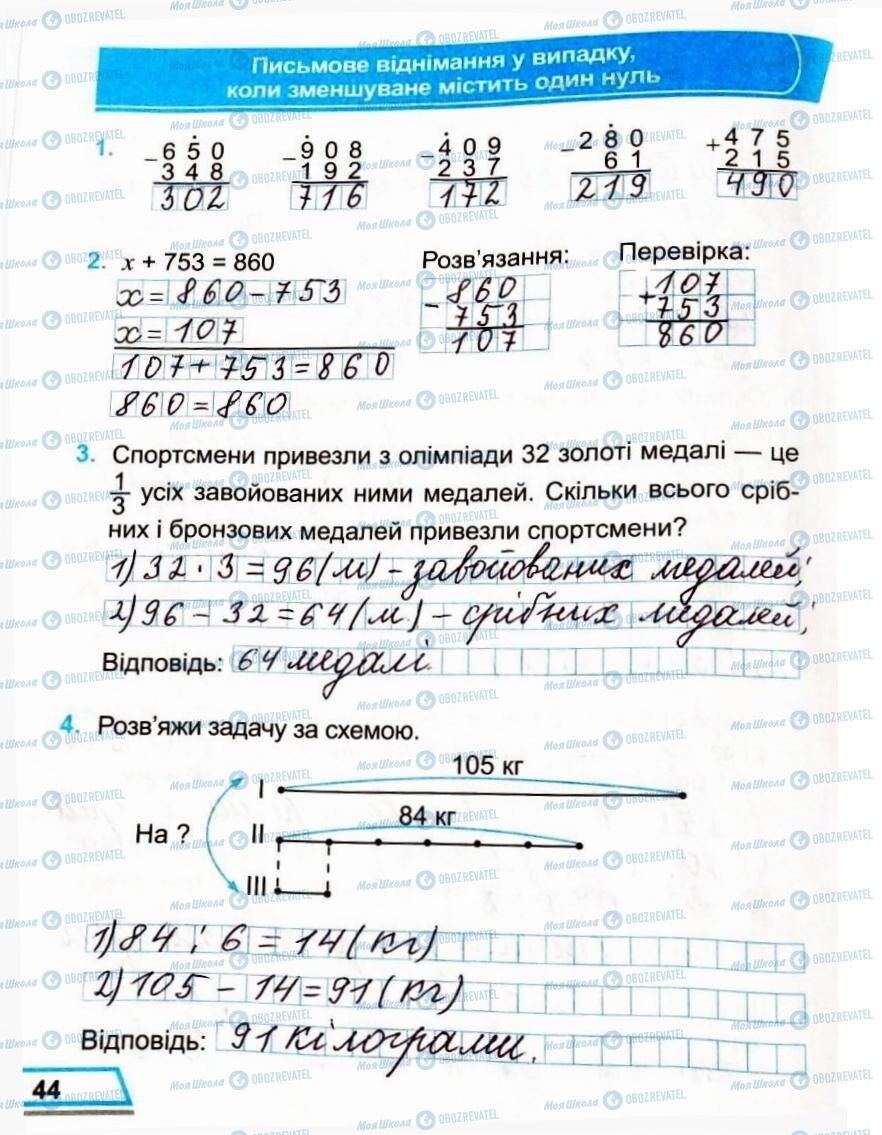 Письмове віднімання у випадку,
коли зменшуване містить один нуль
1. −650 −908 −409 −280 +475
348 192 237 61 215
302 716 172 219 490
2. x + 753 = 860 Розв'язання: Перевірка:
x = 860 − 753 −860 +107
x = 107 753 753
107 + 753 = 860 107 860
860 = 860
3. Спортсмени привезли з олімпіади 32 золоті медалі — це
1/3 усіх завойованих ними медалей. Скільки всього сріб-
них і бронзових медалей привезли спортсмени?
1) 32 · 3 = 96 (м) – завойованих медалей;
2) 96 – 32 = 64 (м.) – срібних медалей;
Відповідь: 64 медалі.
4. Розв'яжи задачу за схемою.
105 кг
I
84 кг
На ? II
III
1) 84 : 6 = 14 (кг)
2) 105 – 14 = 91 (кг)
Відповідь: 91 кілограми.
44
МояШкола OBOZREVATEL